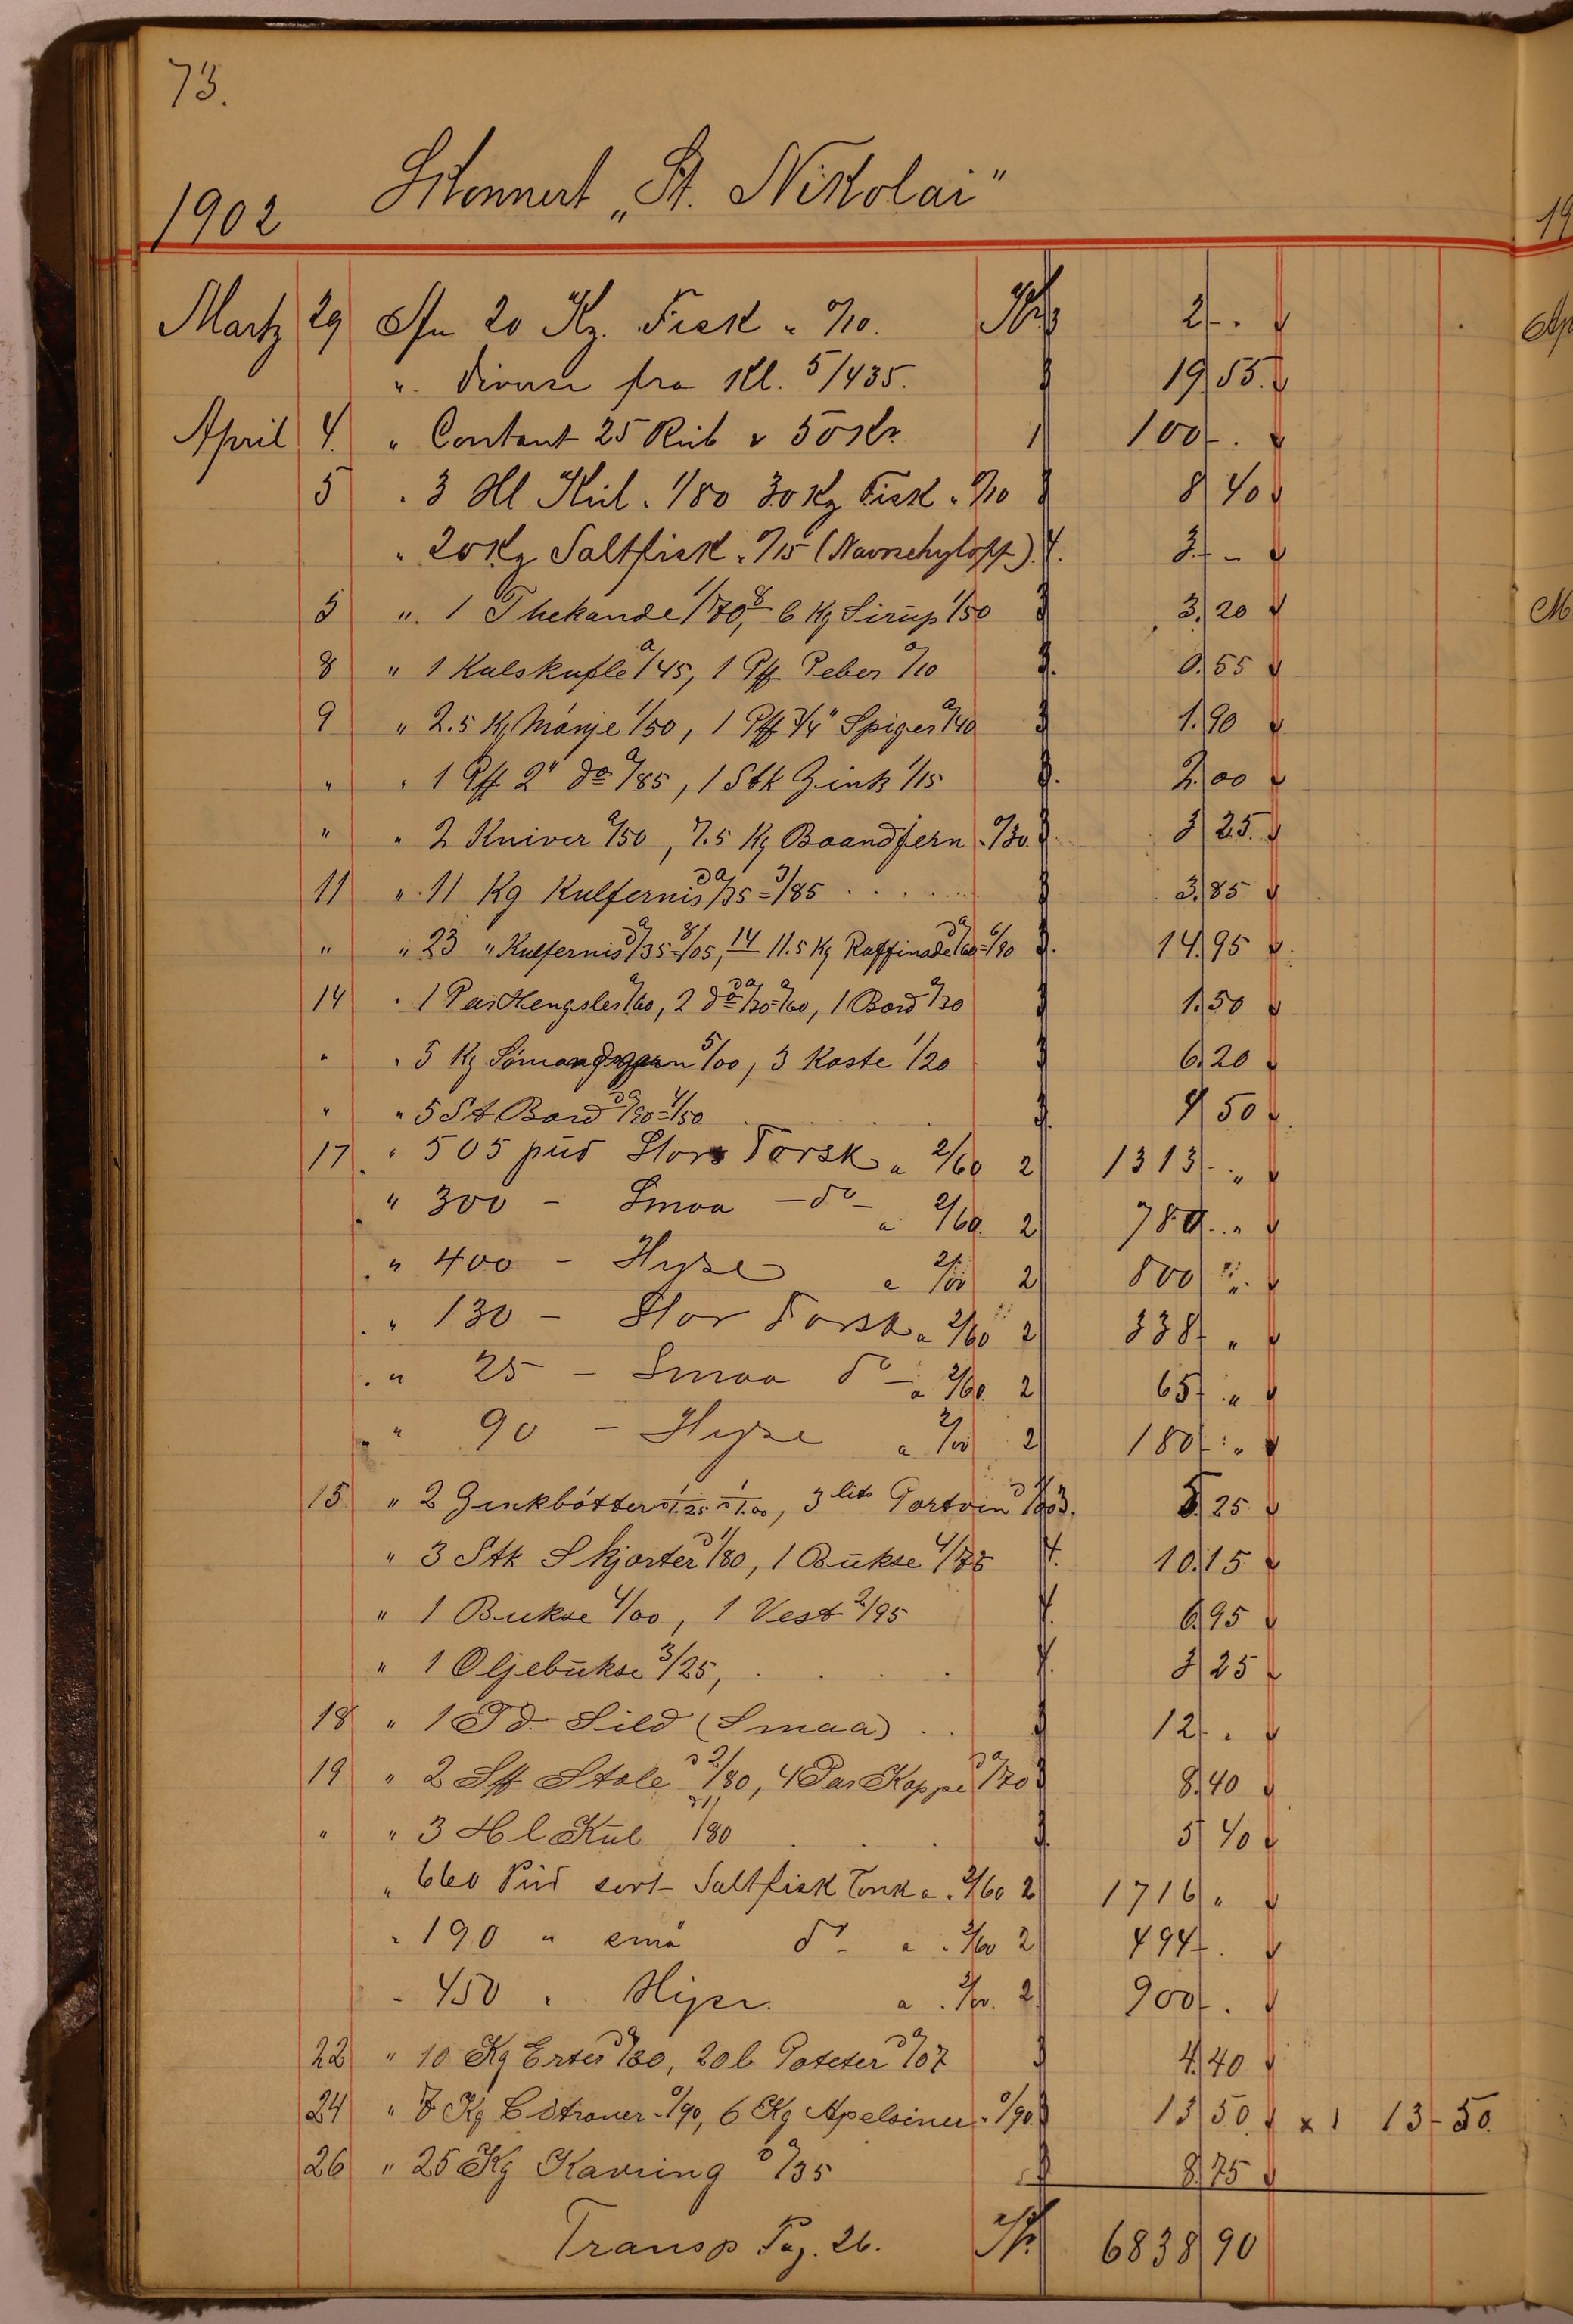 73.
1902 Skonnert „St. Nikolai"
Martz 29 An 20 Kg. Fisk a 0/10. Kr 2 - .
" Diverse fra Kl. 5/435. 19 55.
April 4. " Contant 25 Rub a 50 Kr. 1 100 - .
5 " 3 Hl Kul a 1/80 30 Kg Fisk a 0/10 3 8 40
" 20 Kg Saltfisk a 0/15 4. 3. - -
5 " 1 Thekande 1/70, 6 Kg Sirup 1/50 3 3. 20
8 " 1 Kulskufle 0/45, 1 Pk Peber 0/10 3. 0. 55
9 " 2.5 Kg Mönje 1/50, 1 Pk 3/4" Spiger 0/40 3 1. 90
" " 1 Pk 2" do 0/85, 1 Stk Zink 1/15 3. 2. 00
" " 2 Kniver 0/50, 7.5 Kg Baandjern a 0/30. 3 3 25.
11 " 11 Kg Kulfernis à 0/35 = 3/85 . . . . . . 3 3. 85
" " 23 " Kulfernis à 0/35 = 8/05, 14 11.5 Kg Raffinade à 0/60 = 6/90 3. 14. 95
14 " 1 Par Hengsler 0/60, 2 do à 0/30 = 0/60, 1 Bord 0/30 3 1. 50
" " 5 Kg 5/00, 3 Koste 1/20 3 6. 20
" " 5 St Bord à 0/90 = 4/50 3. 4 50
17. " 505 pud Stor Torsk a 2/60 2 1313 - "
" 300 - Smaa - do - a 2/60. 2 780 . "
" 400 - Hyse a 2/00 2 800 "
" 130 - Stor Torsk a 2/60 2 338 - "
" 25 - Smaa do - a 2/60. 2 65 - "
" 90 - Hyse a 2/00 2 180 - "
15 " 2 Zinkbötter 1.25. 1.00, 3 lit Portvin 3. 5. 25
" 3 Stk Skjorter à 1/80, 1 Bukse 4/75 4. 10. 15
" 1 Bukse 4/00, 1 Vest 2/95 4. 6. 95
" 1 Oljebukse 3/25, . . . 4. 3 25
18 " 1 Td. Sild (Smaa) . . 3 12 - .
19 " 2 Stk Stole à 2/80, 4 Par Koppe à 0/70 3 8. 40
" " 3 Hl Kul à 1/80 . . . 3. 5 40
" 660 Pud sort Saltfisk Torsk a 2/60 2 1716 "
" 190 " små do - a 2/60 2 494 - .
" 450 " Hyse. a 2/00. 2 900 - .
22 " 10 Kg Erter à 0/30, 20 l Poteter à 0/07 3 4. 40
24 " Kg Citroner a 0/90, 6 Kg Apelsiner a 0/90. 3 13 50 x 1 13 - 50.
26 " 25 Kg Kavring à 0/35 3 8. 75
Transp Pag. 26. Kr. 6838 90